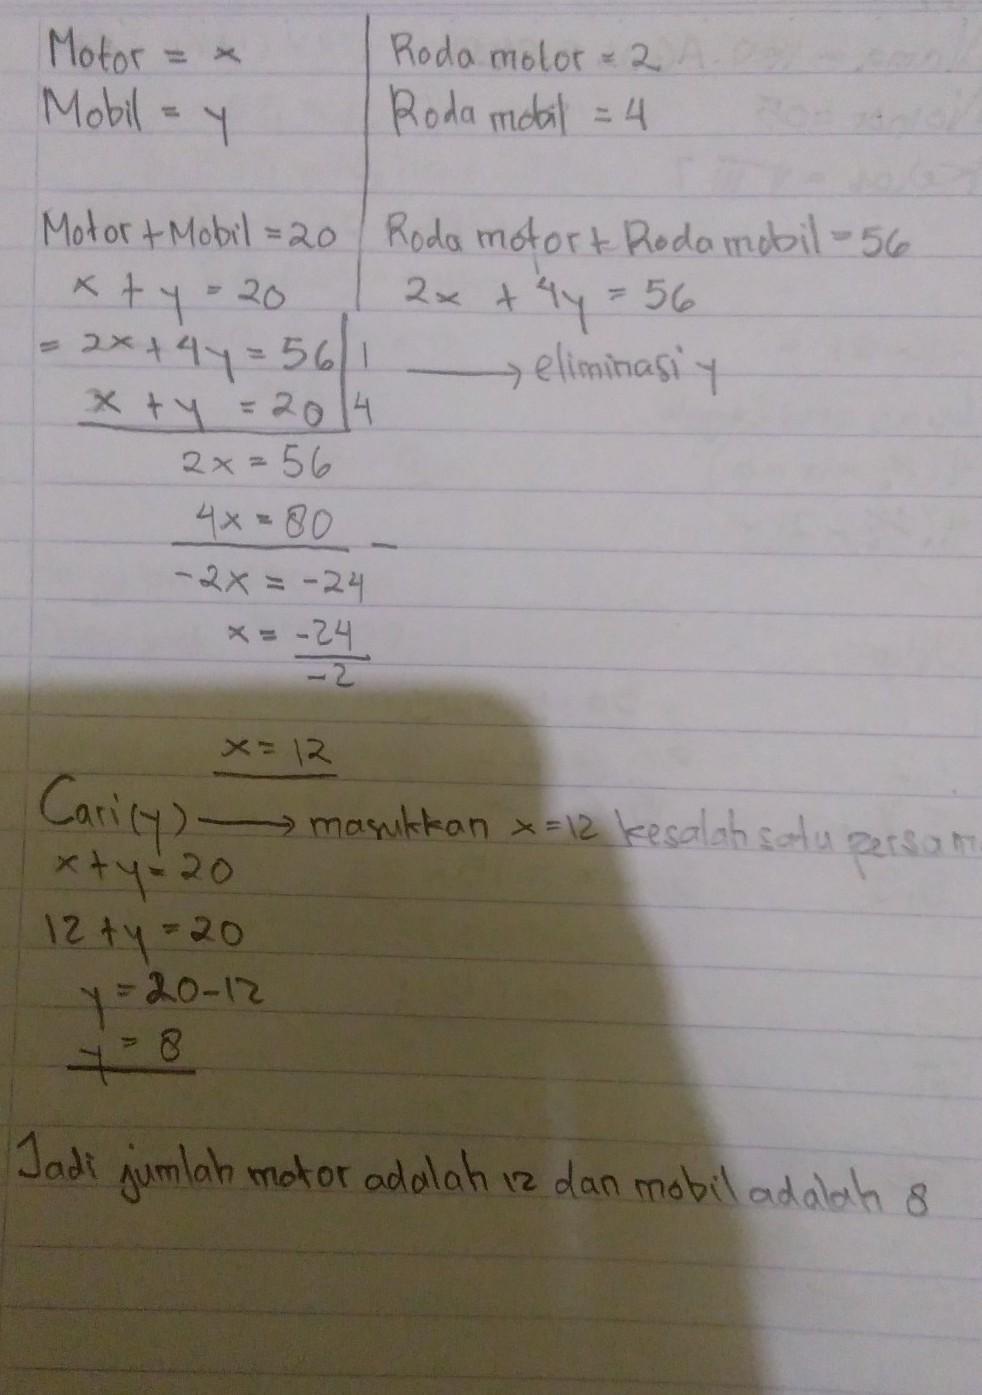 Motor = x
Mobil = y
Roda motor = 2
Roda mobil = 4
Motor + Mobil = 20
x + y = 20
Roda motor + Roda mobil = 56
2x + 4y = 56
= 2x + 4y = 56 | 1 → eliminasi y
x + y = 20 | 4
2x = 56
4x = 80 -
-2x = -24
x = -24
-2
x = 12
Cari (y) → masukkan x = 12 kesalah satu persam
x + y = 20
12 + y = 20
y = 20 - 12
y = 8
Jadi jumlah motor adalah 12 dan mobil adalah 8